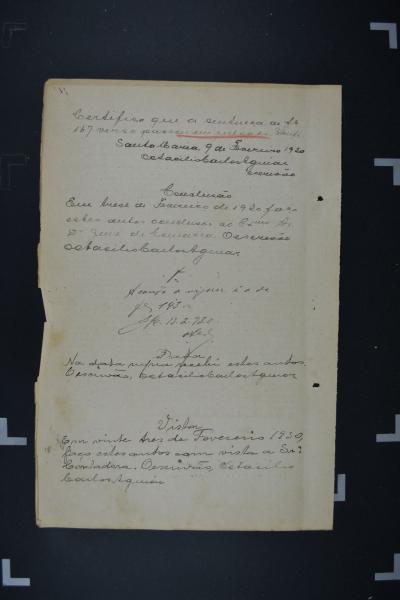 Certifico que a sentença de fs
167 verso passou em julgado. Dou fé
Santa Maria, 9 de Fevereiro 1930
Octacilio Carlos Aguiar
Escrivão
Conclusão
Em treze de Fevereiro de 1930 faço
estes autos conclusos ao Exmo Dr.
Juiz de Comarca. O escrivão
Octacilio Carlos Aguiar
13.2.930
Data
Na data supra recebi estes autos.
O escrivão, Octacilio Carlos Aguiar
Vista
Em vinte tres de Fevereiro 1930,
faço estes autos com vista a Snr.ª
Contadora. O escrivão, Octacilio
Carlos Aguiar